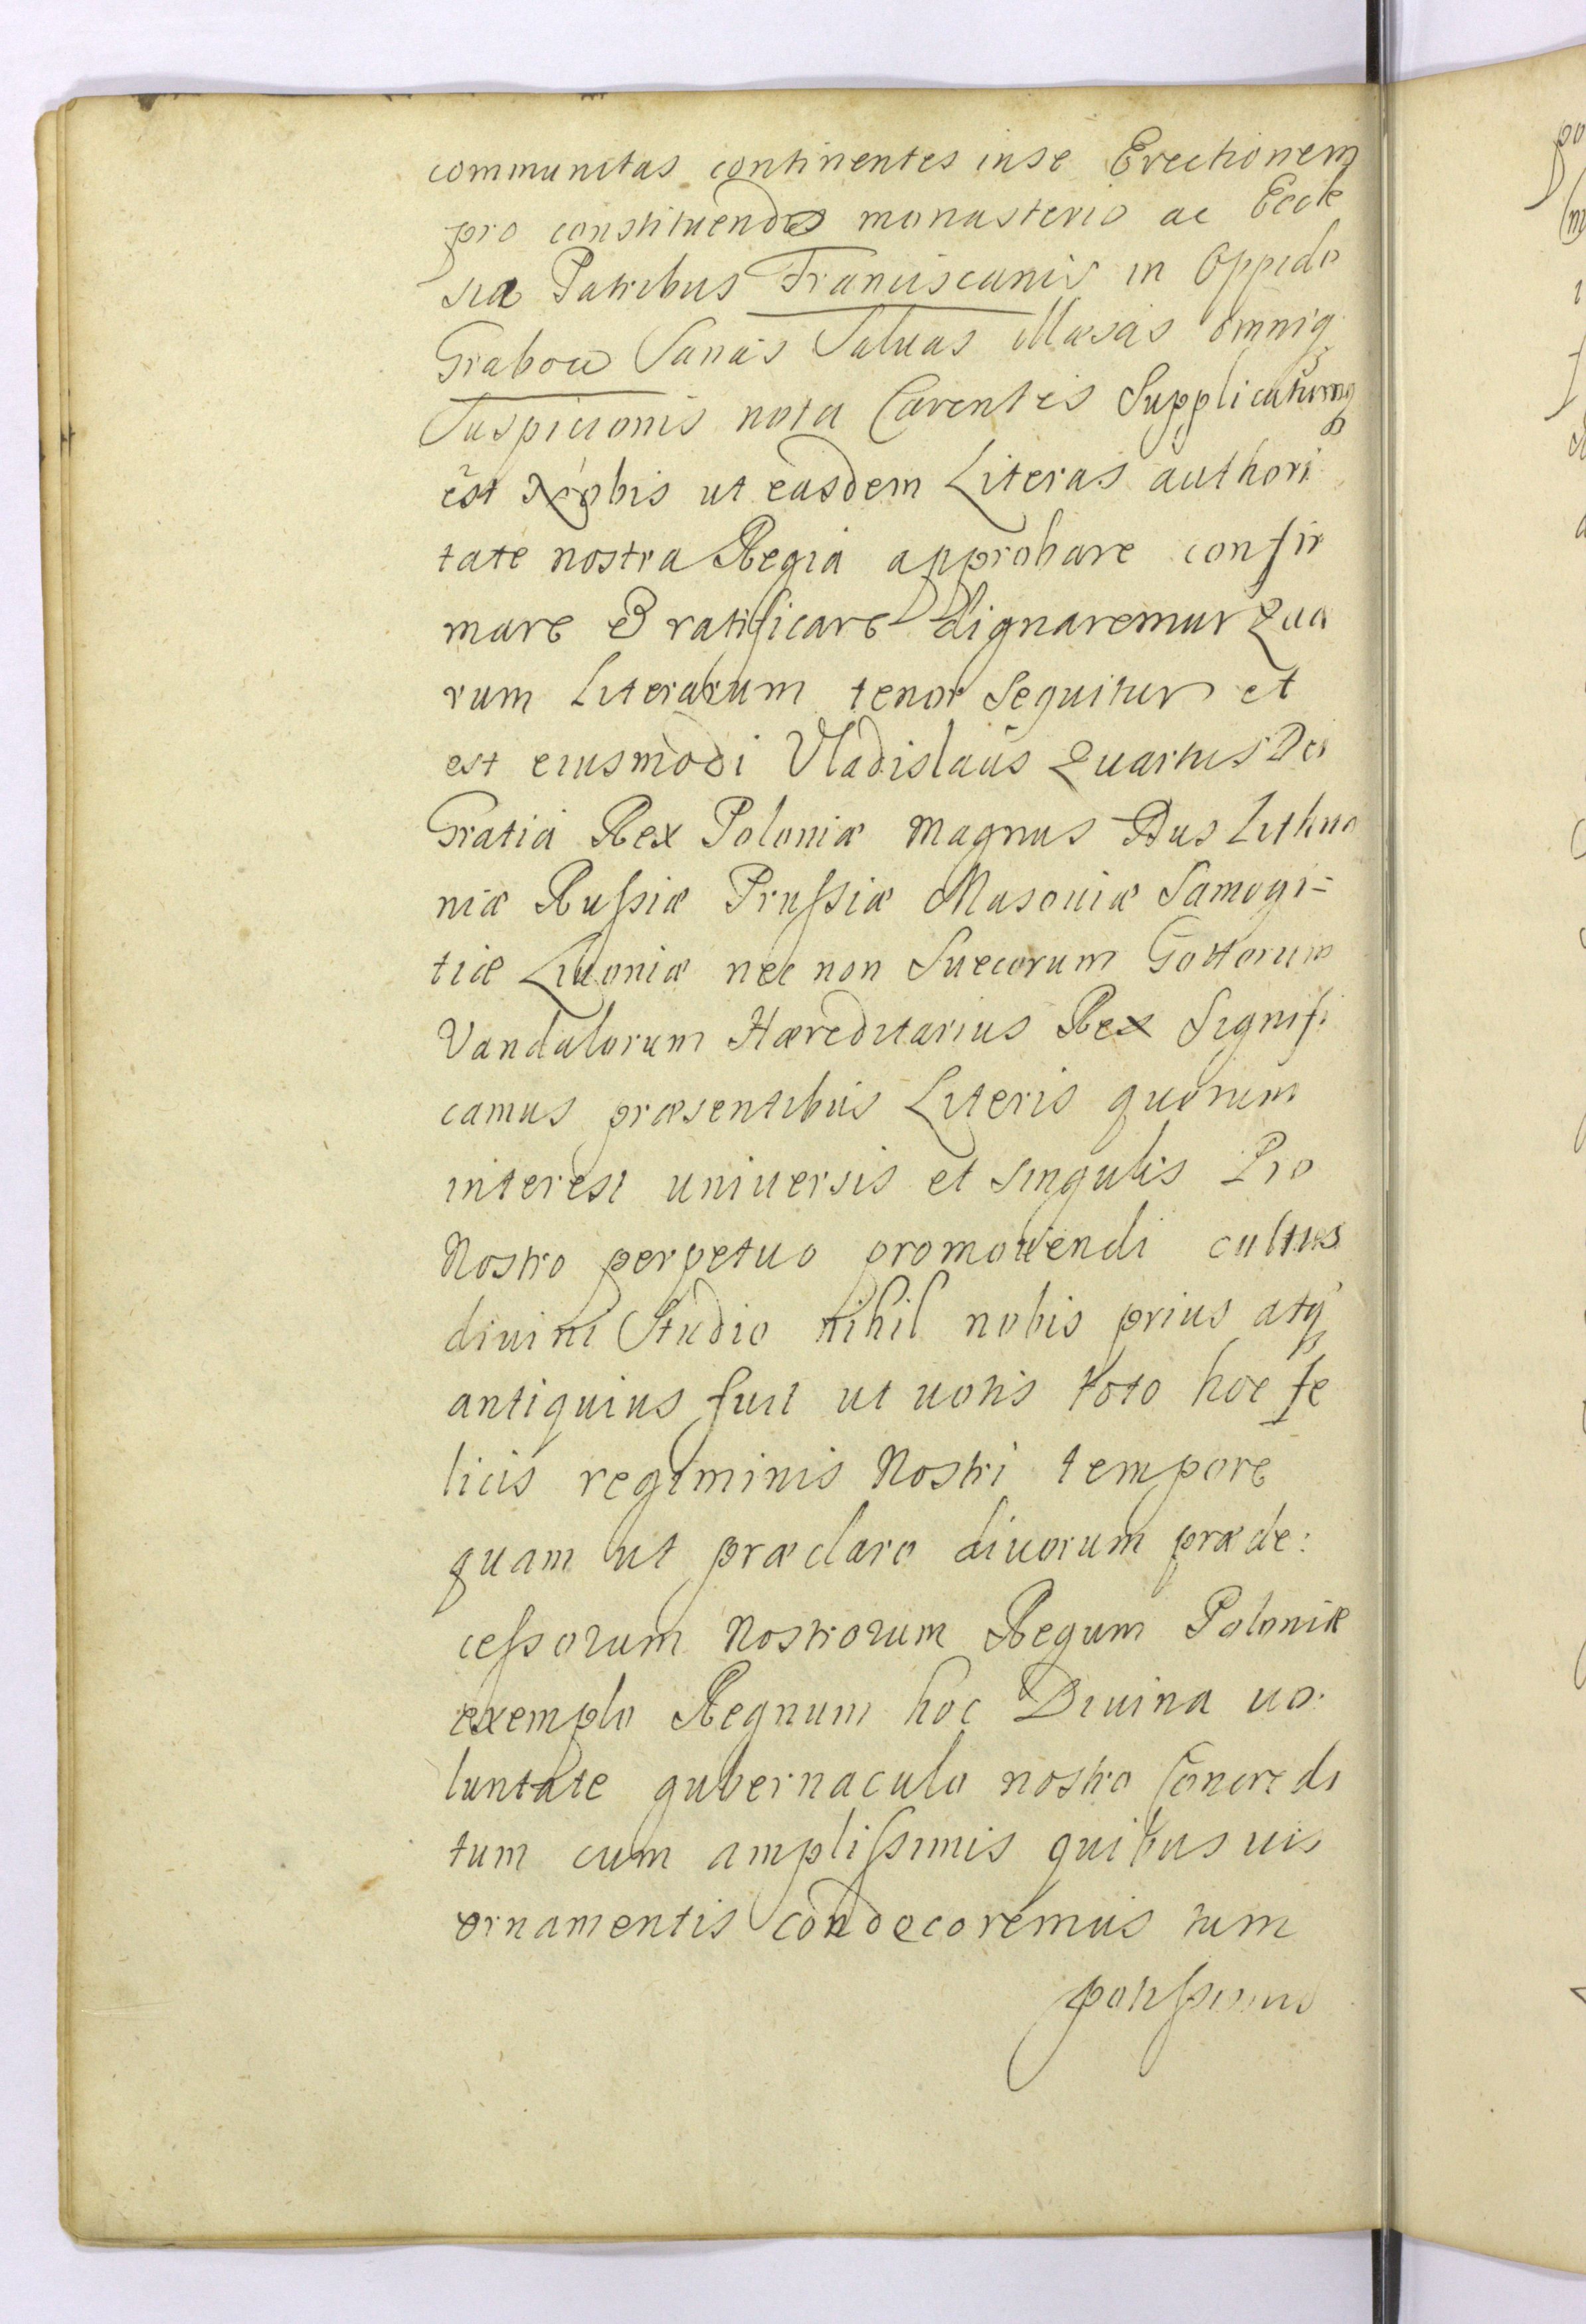 communitas continentes inse Erectionem
pro constituendo monasterio ac Eccle
sia Patribus Franciscanis in Oppido
Grabow Sanas Saluas Illæsas omniq
Suspicionis nota Carentes Supplicatumq
est Nobis ut easdem Literas authori
tate nostra Regia approbare confir
mare & ratificare dignaremur Qua
rum Literarum tenor Sequitur et
est eiusmodi Vladislaus Quartus Dei
Gratia Rex Poloniæ Magnus Dux Lithua
niæ Russiæ Prussiæ Masouiæ Samogi=
tiæ Liuoniæ nec non Suecorum Gottorum
Vandalorum Hæreditarius Rex Signifi
camus præsentibus Literis quorum
interest uniuersis et singulis Pro
Nostro perpetuo promouendi cultus
diuini Studio nihil nobis prius atq
antiquius fuit ut uotis toto hoc fe
licis regiminis Nostri tempore
quam ut præclaro diuorum præde:
cessorum Nostrorum Regum Poloniæ
exemplo Regnum hoc Diuina uo.
luntate gubernaculo nostro Concredi
tum cum amplissimis quibus uis
ornamentis condecoremus tum
potissimum